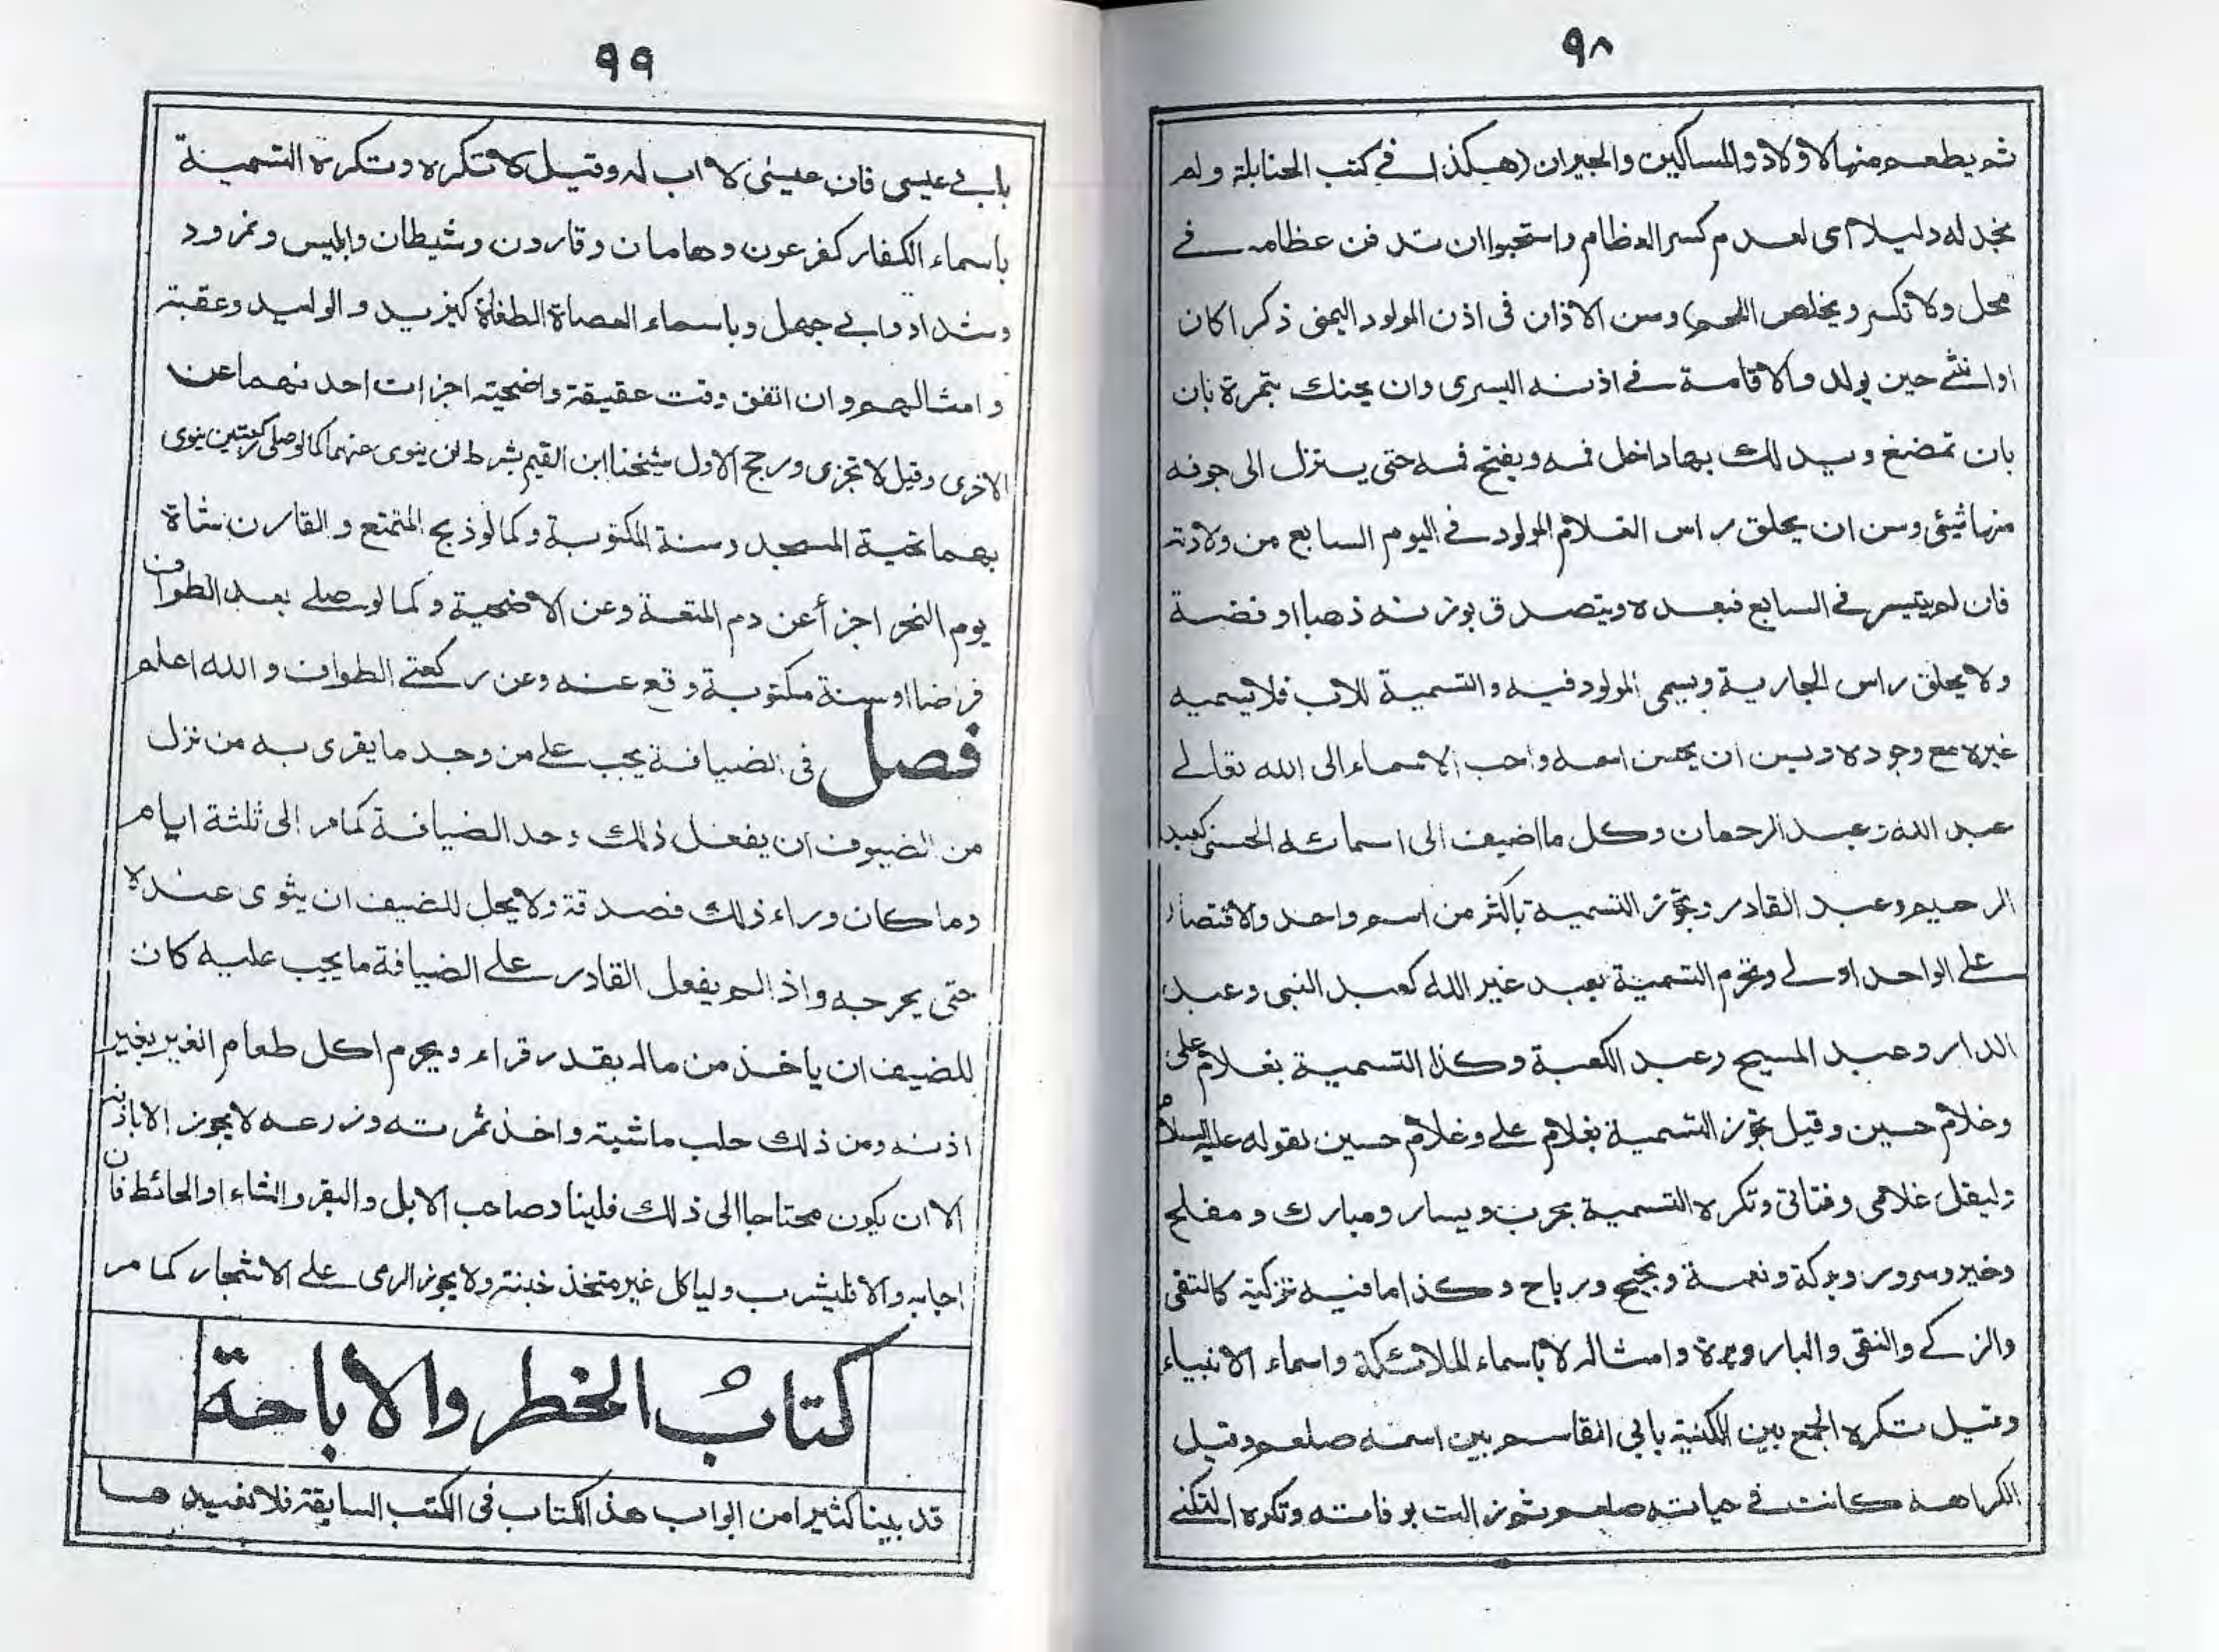 ٩٨
ثم يطعم منها الاولاد والمساكين والجيران (هكذا في كتب الحنابلة ولم
نجد له دليلا اى لعدم كسر العظام واستحبوا ان تدفن عظامه في
محل ولا تكسر ويخلص اللحم) وسن الاذان فى اذن المولود اليمنى ذكرا كان
او انثى حين يولد والاقامة في اذنه اليسرى وان يحنك بتمرة بان
بان تمضغ ويدلك بها داخل فمه ويفتح فمه حتى يتنزل الى جوفه
منها شيئ وسن ان يحلق راس الغلام المولود في اليوم السابع من ولادته
فان لم يتيسر في السابع فبعده ويتصدق بوزنه ذهبا او فضة
ولا يحلق راس الجارية ويسمى المولود فيه والتسمية للاب فلا يسميه
غيره مع وجوده ويسن ان يحسن اسمه واحب الاسماء الى الله تعالے
عبد الله وعبد الرحمان وكل ما اضيف الى اسمائه الحسنى كعبد
الرحيم وعبد القادر وتجوز التسمية باكثر من اسم واحد والاقتصار
على الواحد اولے وتحرم التسمية بعبد غير الله كعبد النبى وعبد
الدار وعبد المسيح وعبد الكعبة وكذا التسمية بغلام على
وغلام حسين وقيل تجوز التسمية بغلام على وغلام حسين لقوله عليه السلام
وليقل غلامى وفتاتى وتكره التسمية بحرب ويسار ومبارك ومفلح
وخير وسرور وبركة ونعمة ونجيح ورباح وكذا ما فيه تزكية كالتقى
والزكے والنقى والبار وبرة وامثاله لا باسماء الملائكة واسماء الانبياء
وقيل تكره الجمع بين الكنية بابى القاسم وبين اسمه صلعم وقيل
الكراهه كانت في حياته صلعم ثم زالت بوفاته وتكره التكنے
٩٩
بابے عيسى فان عيسٰى لا اب له وقيل لا تكره وتكره التسمية
باسماء الكفار كفرعون وهامان وقارون وشيطان وابليس ونمرود
وشداد وابے جهل وباسماء العصاة الطغاة كيزيد والوليد وعقبة
وامثالهم وان اتفق وقت عقيقة واضحيته اجزات احدٰهما عن
الاخرى وقيل لا تجزى ورجح الاول شيخنا ابن القيم بشرط ان ينوى عنهما كما لو صلى ركعتين ينوى
بهما تحية المسجد وسنة المكتوبة وكما لو ذبح المتمتع والقارن شاة
يوم النحر اجزأ عن دم المتعة وعن الاضحية وكما لو صلے بعد الطواف
فرضا او سنة مكتوبة وقع عنه وعن ركعتے الطواف والله اعلم
فصل فى الضيافة يجب على من وجد ما يقرى به من نزل
من الضيوف ان يفعل ذلك وحد الضيافة كما مر الى ثلثة ايام
وما كان وراء ذلك فصدقة ولا يحل للضيف ان يثوى عنده
حتى يحرجه واذا لم يفعل القادر على الضيافة ما يجب عليه كان
للضيف ان ياخذ من ماله بقدر قراء ويحرم اكل طعام الغير بغير
اذنه ومن ذلك حلب ماشية واخذ ثمرته وزرعه لا يجوز الا باذنه
الا ان يكون محتاجا الى ذلك فلينا د صاحب الابل والبقر والشاء او الحائط فان
اجابه والا فليشرب ولياكل غير متخذ خبنة ولا يجوز الرمى على الاشجار كما مر
كتاب الخطر والاباحة
قد بينا كثيرا من ابواب هذ الكتاب فى الكتب السابقة فلا نعيدها